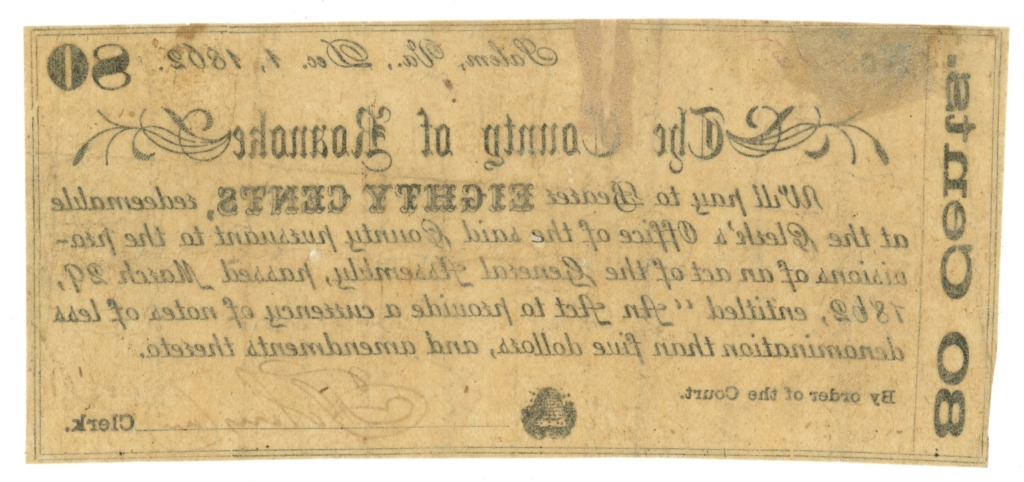 No.
Salem, Va., Dec. 1, 1862.
80
The County of Roanoke
Will pay to Bearer EIGHTY CENTS, redeemable
at the Clerk's Office of the said County pursuant to the pro-
visions of an act of the General Assembly, passed March 29,
1862, entitled "An Act to provide a currency of notes of less
denomination than five dollars, and amendments thereto.
By order of the Court.
Clerk.
80 Cents.